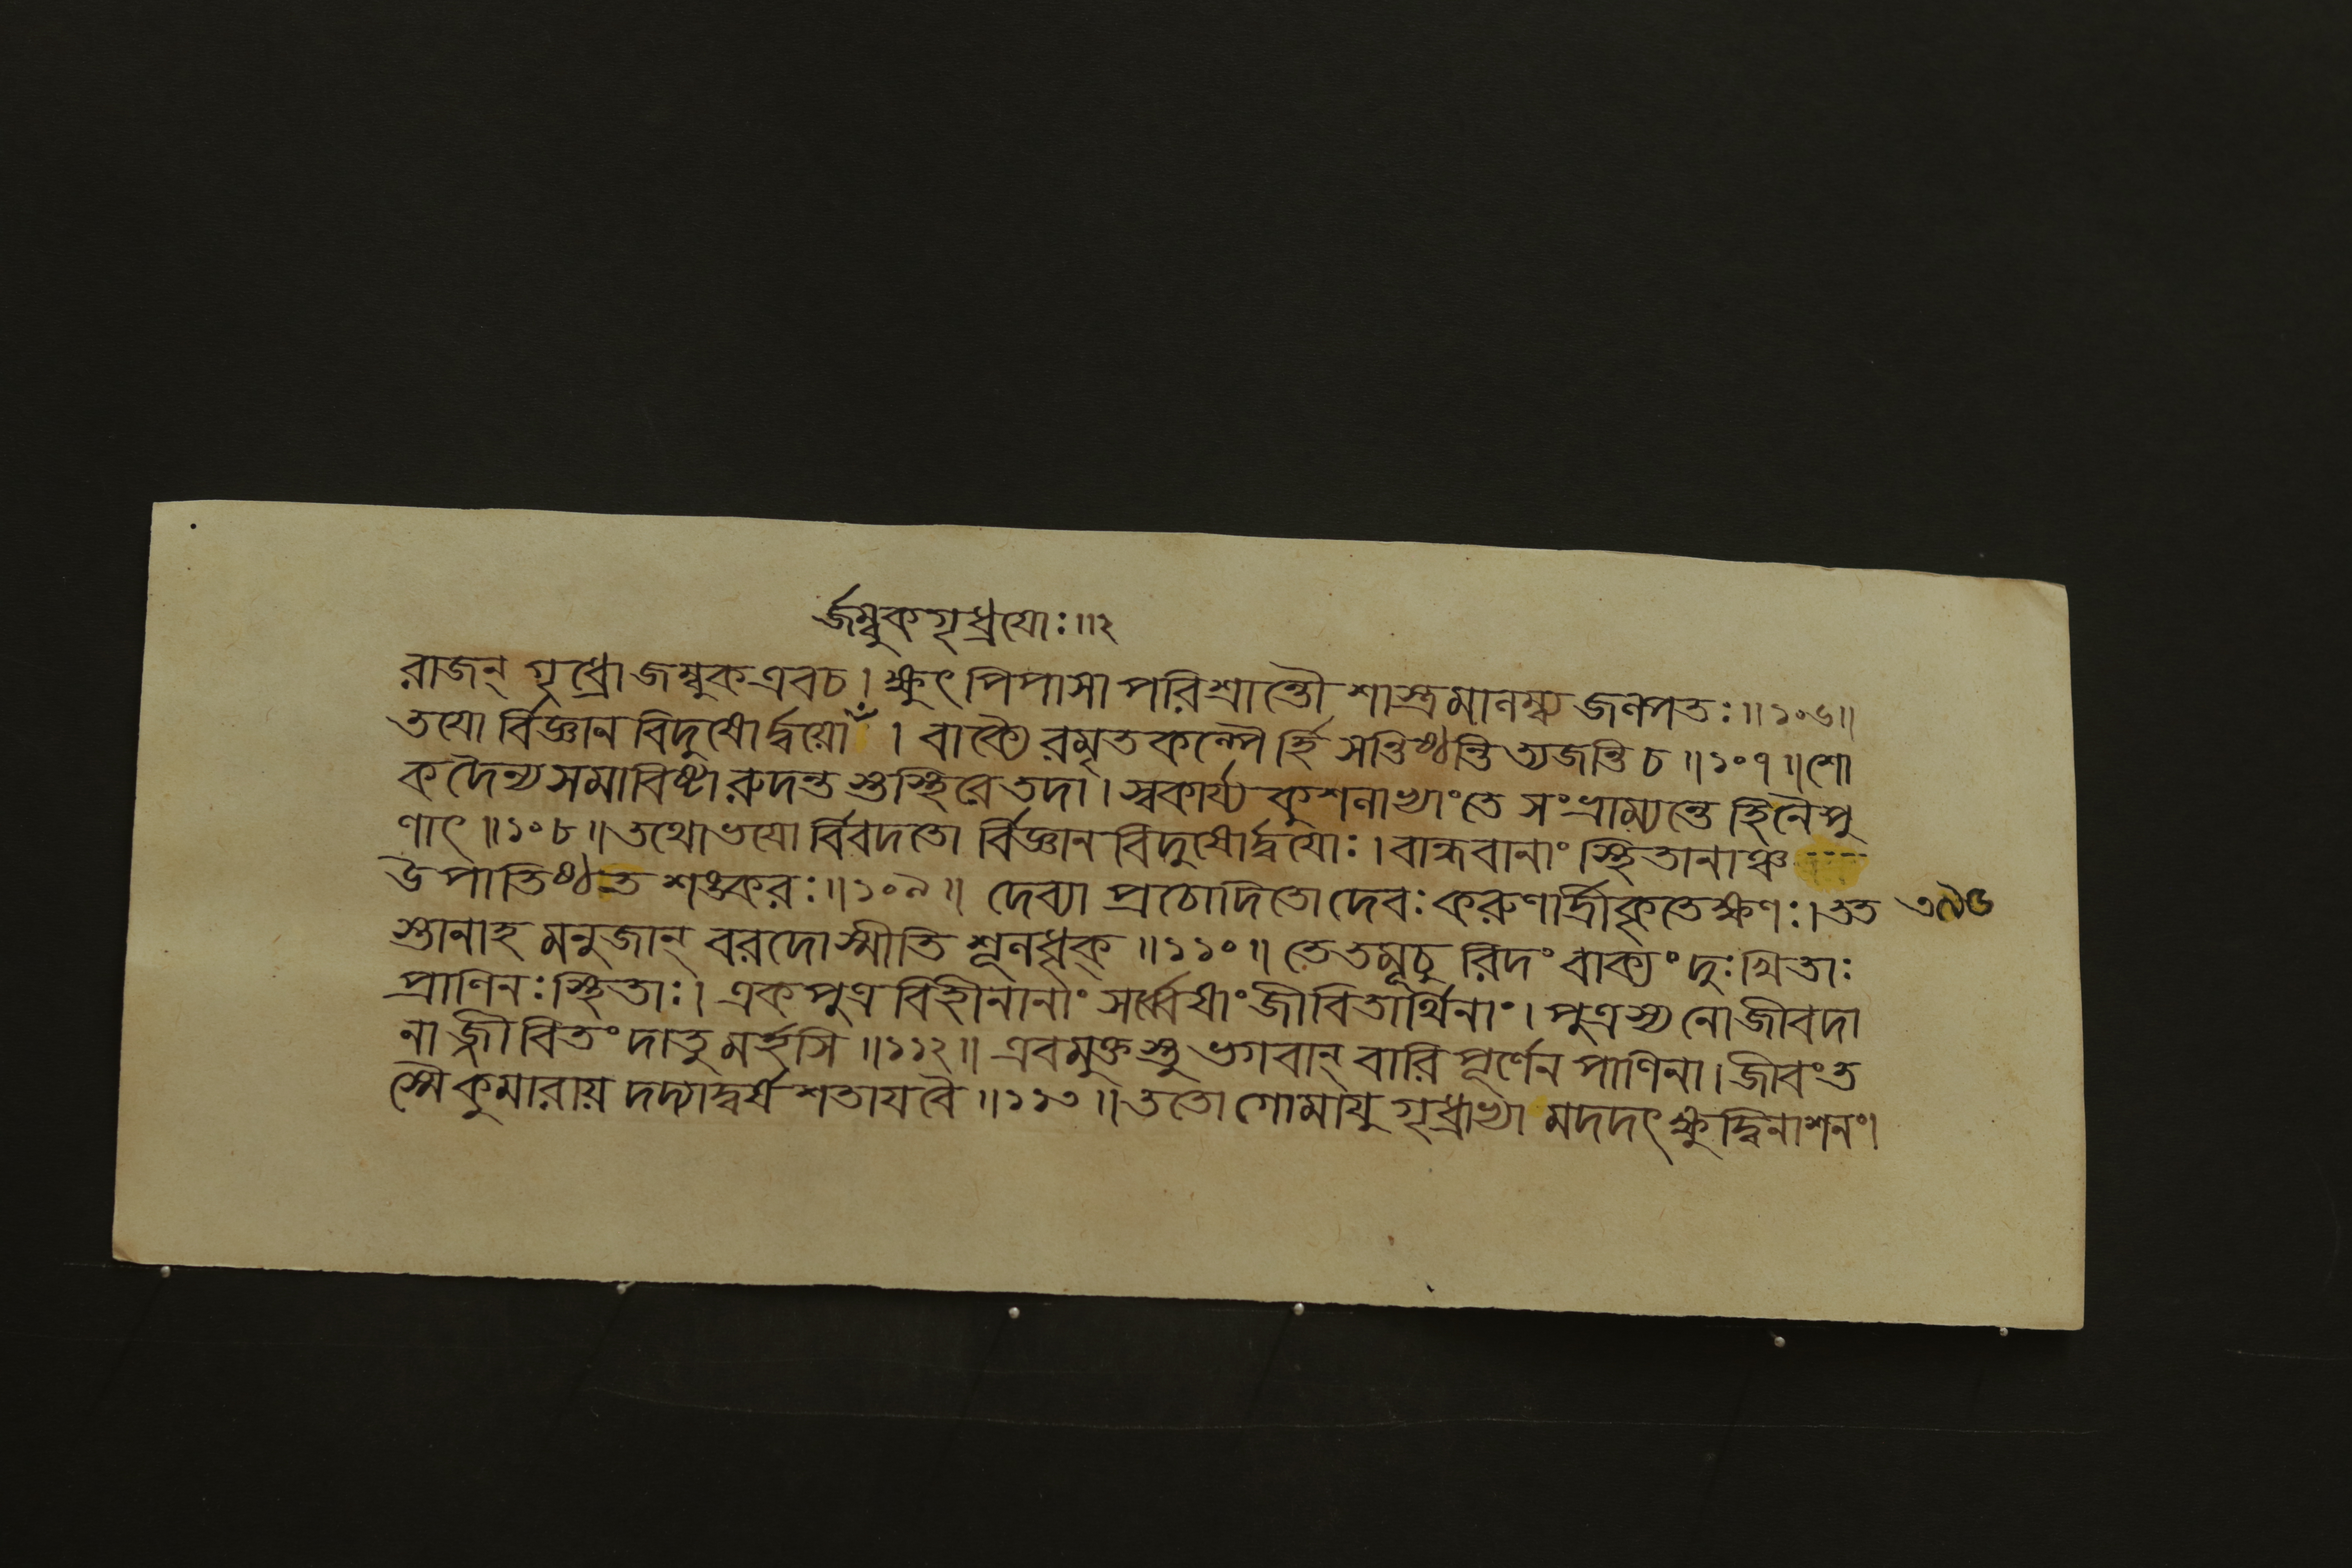 র্জম্বুকগৃধ্রয়োঃ॥২
রাজন্ গৃধ্রো জম্বুক এবচ। ক্ষুৎপিপাসা পরিশ্রান্তৌ শাস্ত্রমালম্ব্য জল্পতঃ॥১০৬॥
তয়ো র্বিজ্ঞান বিদুষোর্দ্বয়ো। বাক্যৈ রমৃতকল্পৈ র্হি সন্তিষ্ঠন্তি ত্যজন্তি চ॥১০৭॥শো
কদৈন্য সমাবিষ্টা রুদন্ত স্তুস্থিরে তদা। স্বকার্য্য কুশলাভ্যাং তে সংভ্রাম্যন্তে হি নৈপু
ণাৎ॥১০৮॥তথোভয়ো র্বিবদতো র্বিজ্ঞান বিদুষোর্দ্বয়োঃ। বান্ধবানাং স্থিতানাঞ্চ
উপাতিষ্ঠত শঙ্করঃ॥১০৯॥ দেব্যা প্রচোদিতো দেবঃ করুণার্দ্রীকৃতেক্ষণঃ। তত
স্তানাহ মনুজান্ বরদোস্মীতি শূলধৃক্॥১১০॥ তে তমূচু রিদং বাক্যং দুঃখিতাঃ
প্রাণিনঃ স্থিতাঃ। একপুত্র বিহীনানাং সর্ব্বেষাং জীবিতার্থিনাং। পুত্রস্য নো জীবদা
না জ্জীবিতং দাতু মর্হসি॥১১২॥ এবমুক্ত স্তু ভগবান্ বারি পূর্ণেন পাণিনা। জীবং ত
স্মৈ কুমারায় দদ্যাদ্বর্ষ শতায়বৈ॥১১৩॥ততো গোমায়ু গৃধ্রাভ্যা মদদৎ ক্ষুদ্বিনাশনং।